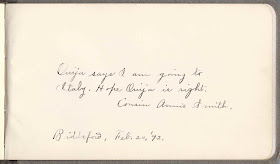 Ouija says I am going to
Italy. Hope Ouija is right.
Cousin Annie Smith.
Biddeford, Feb. 22, '92.